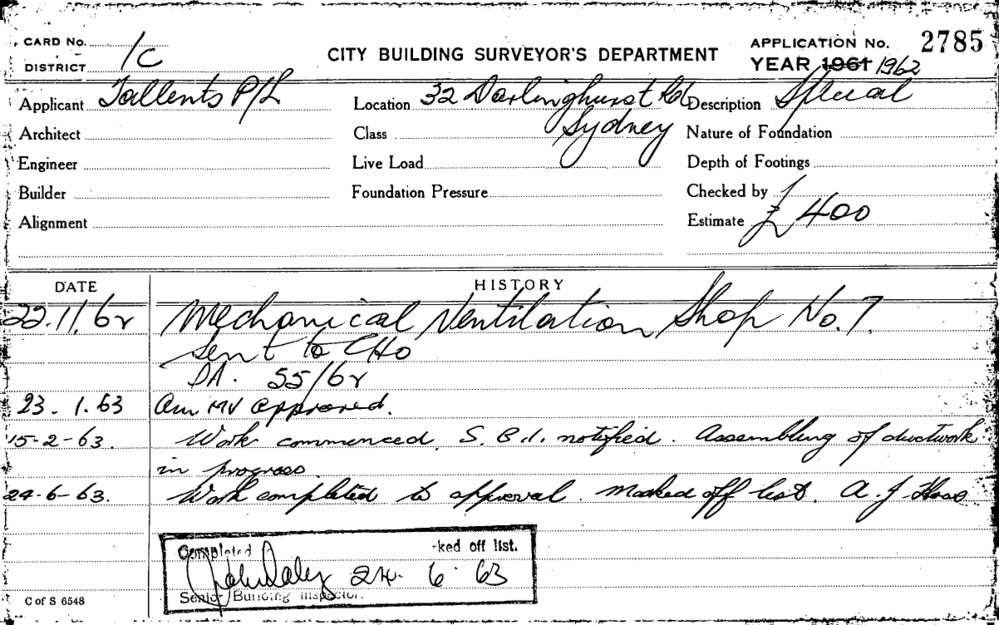 CARD No.
DISTRICT 1C
CITY BUILDING SURVEYOR'S DEPARTMENT
APPLICATION No. 2785
YEAR 1961 1962
Applicant Tallents P/L
Location 32 Darlinghurst Rd
Sydney
Description Special
Architect
Class
Nature of Foundation
Engineer
Live Load
Depth of Footings
Builder
Foundation Pressure
Checked by
Alignment
Estimate £400
DATE HISTORY
22.11.62 Mechanical Ventilation Shop No. 7.
Sent to CHO
DA. 55/62
23.1.63 MV approved.
15-2-63. Work commenced. S.B.I. notified. Assembling of ductwork
in progress
24-6-63. Work completed to approval. Marked off list. A. J.
Completed ked off list.
John Daley 24. 6. 63
Senior Building Inspector.
C of S 6548